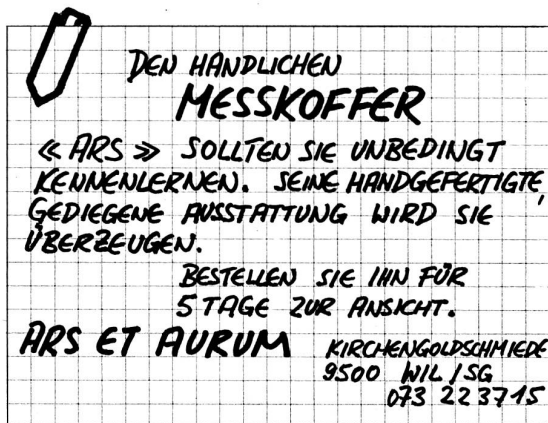 DEN HANDLICHEN
MESSKOFFER
« ARS » SOLLTEN SIE UNBEDINGT
KENNENLERNEN. SEINE HANDGEFERTIGTE,
GEDIEGENE AUSSTATTUNG WIRD SIE
ÜBERZEUGEN.
BESTELLEN SIE IHN FÜR
5 TAGE ZUR ANSICHT.
ARS ET AURUM KIRCHENGOLDSCHMIEDE
9500 WIL / SG
073 22 37 15